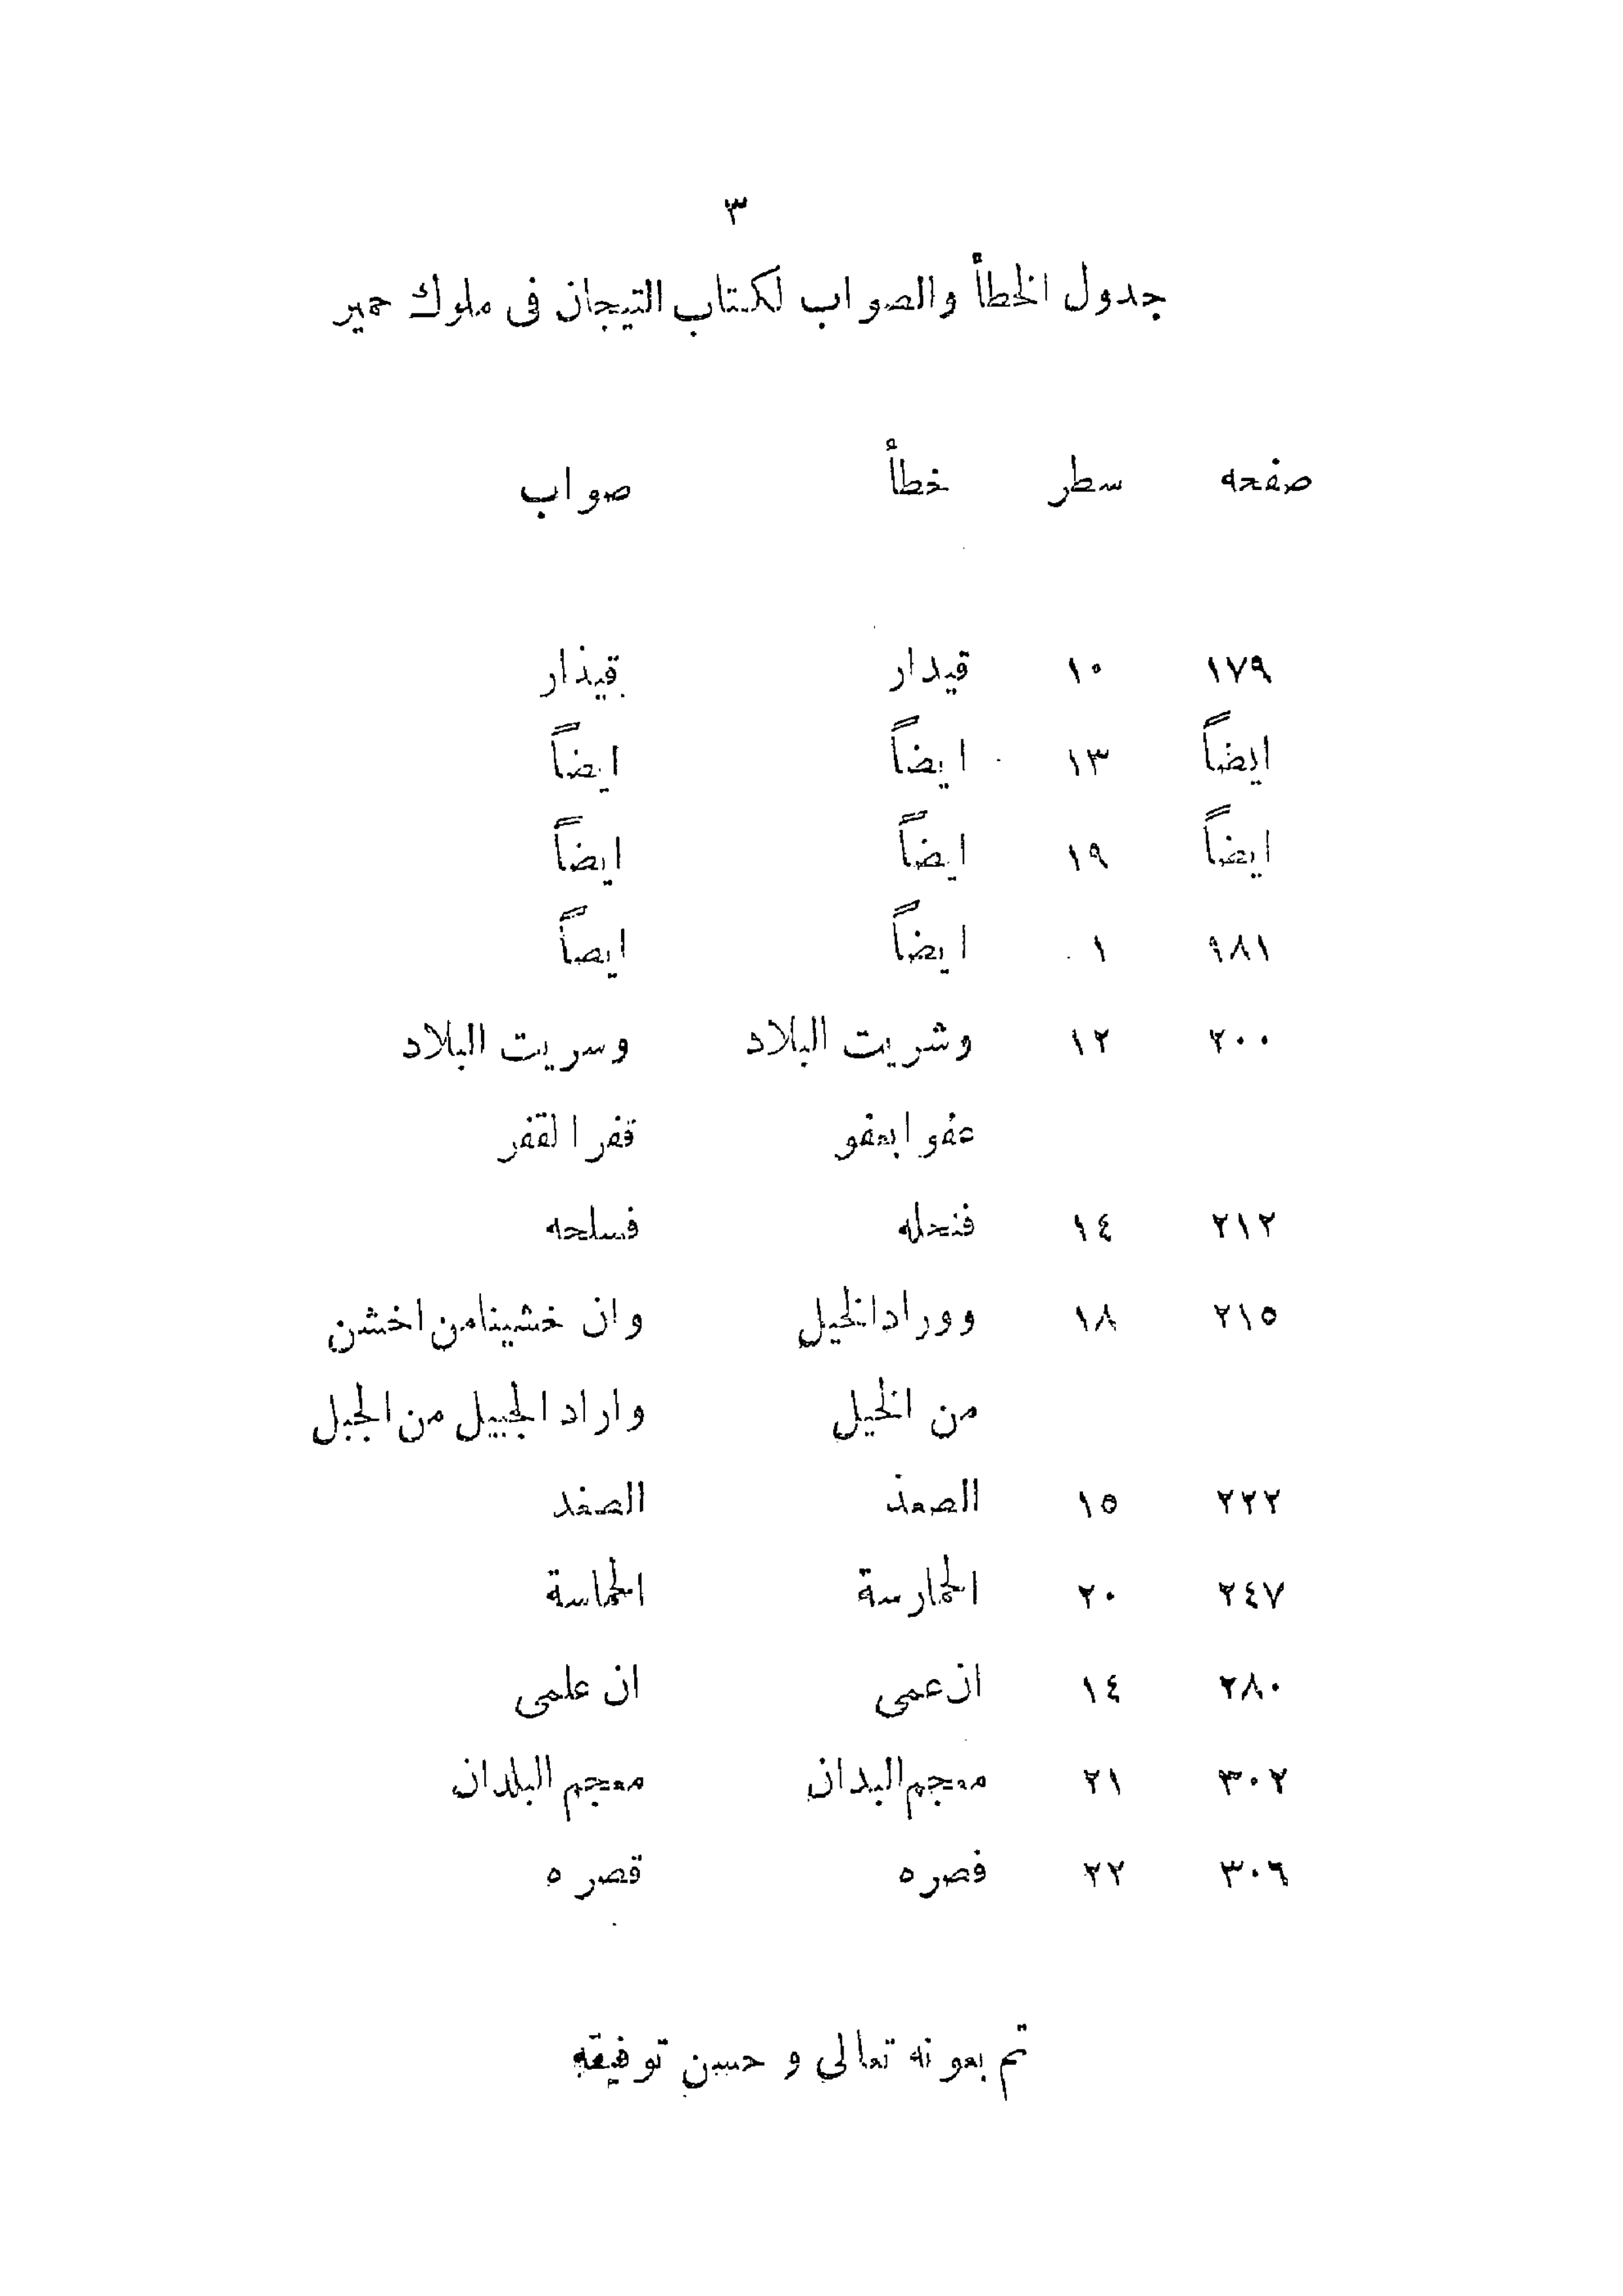 ٣
جدول الخطأ والصواب لكتاب التيجان فى ملوك حمير
صفحه سطر خطأ صواب
١٧٩ ١٠ قيدار قيذار
ايضاً ١٣ ايضاً ايضاً
ايضاً ١٩ ايضاً ايضاً
١٨١ ١ ايضاً ايصاً
٢٠٠ ١٢ وشريت البلاد وسريت البلاد
عفوا بعفو قفر القفر
٢١٢ ١٤ فنحله فسلحه
٢١٥ ١٨ ووراد الخيل وان خشينا من اخشن
من الخيل واراد الجبيل من الجبل
٢٢٢ ١٥ الصعذ الصفد
٢٤٧ ٢٠ الحمارسة الحماسة
٢٨٠ ١٤ ان عمى ان علمى
٣٠٢ ٢١ معجم البدان معجم البلدان
٣٠٦ ٢٢ فصره قصره
تم بعونه تعالى و حسن توفيقه